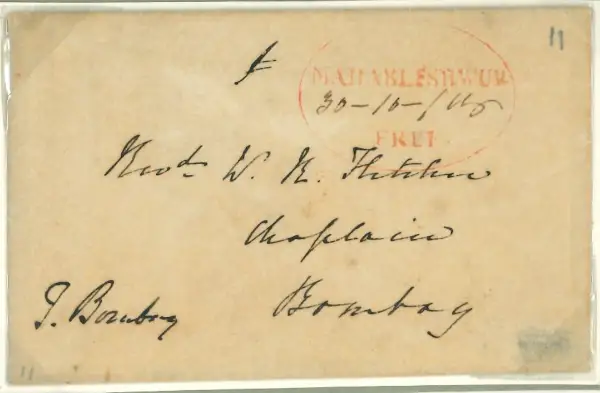 MAHABLESHWUR
30-10-/45
FREE
Revd. W. K. Fletcher
Chaplain
Bombay
J. Bombay
11